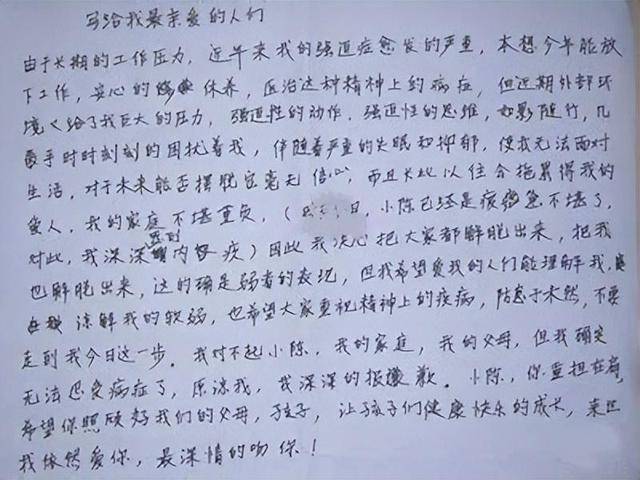 写给我最亲爱的人们
由于长期的工作压力，近年来我的强迫症愈发的严重，本想今年能放
下工作，安心的休养，医治这种精神上的病症，但近期外部环
境又给了我巨大的压力，强迫性的动作，强迫性的思维，如影随行，几
乎时时刻刻的困扰着我，伴随着严重的失眠和抑郁，使我无法面对
生活，对于未来能否摆脱它毫无信心，而且长此以往会拖累得我的
爱人，我的家庭不堪重负，（日，小陈已经是疲惫不堪了，
对此，我深深感到内疚）因此我决心把大家都解脱出来，把我
也解脱出来，这的确是弱者的表现，但我希望爱我的人们能理解我，
谅解我的软弱，也希望大家重视精神上的疾病，防患于未然，不要
走到我今日这一步。我对不起小陈，我的家庭，我的父母，但我确实
无法忍受病症了，原谅我，我深深的报歉。小陈，你重担在肩，
希望你照顾好我们的父母，孩子，让孩子们健康快乐的成长，来世
我依然爱你，最深情的吻你！